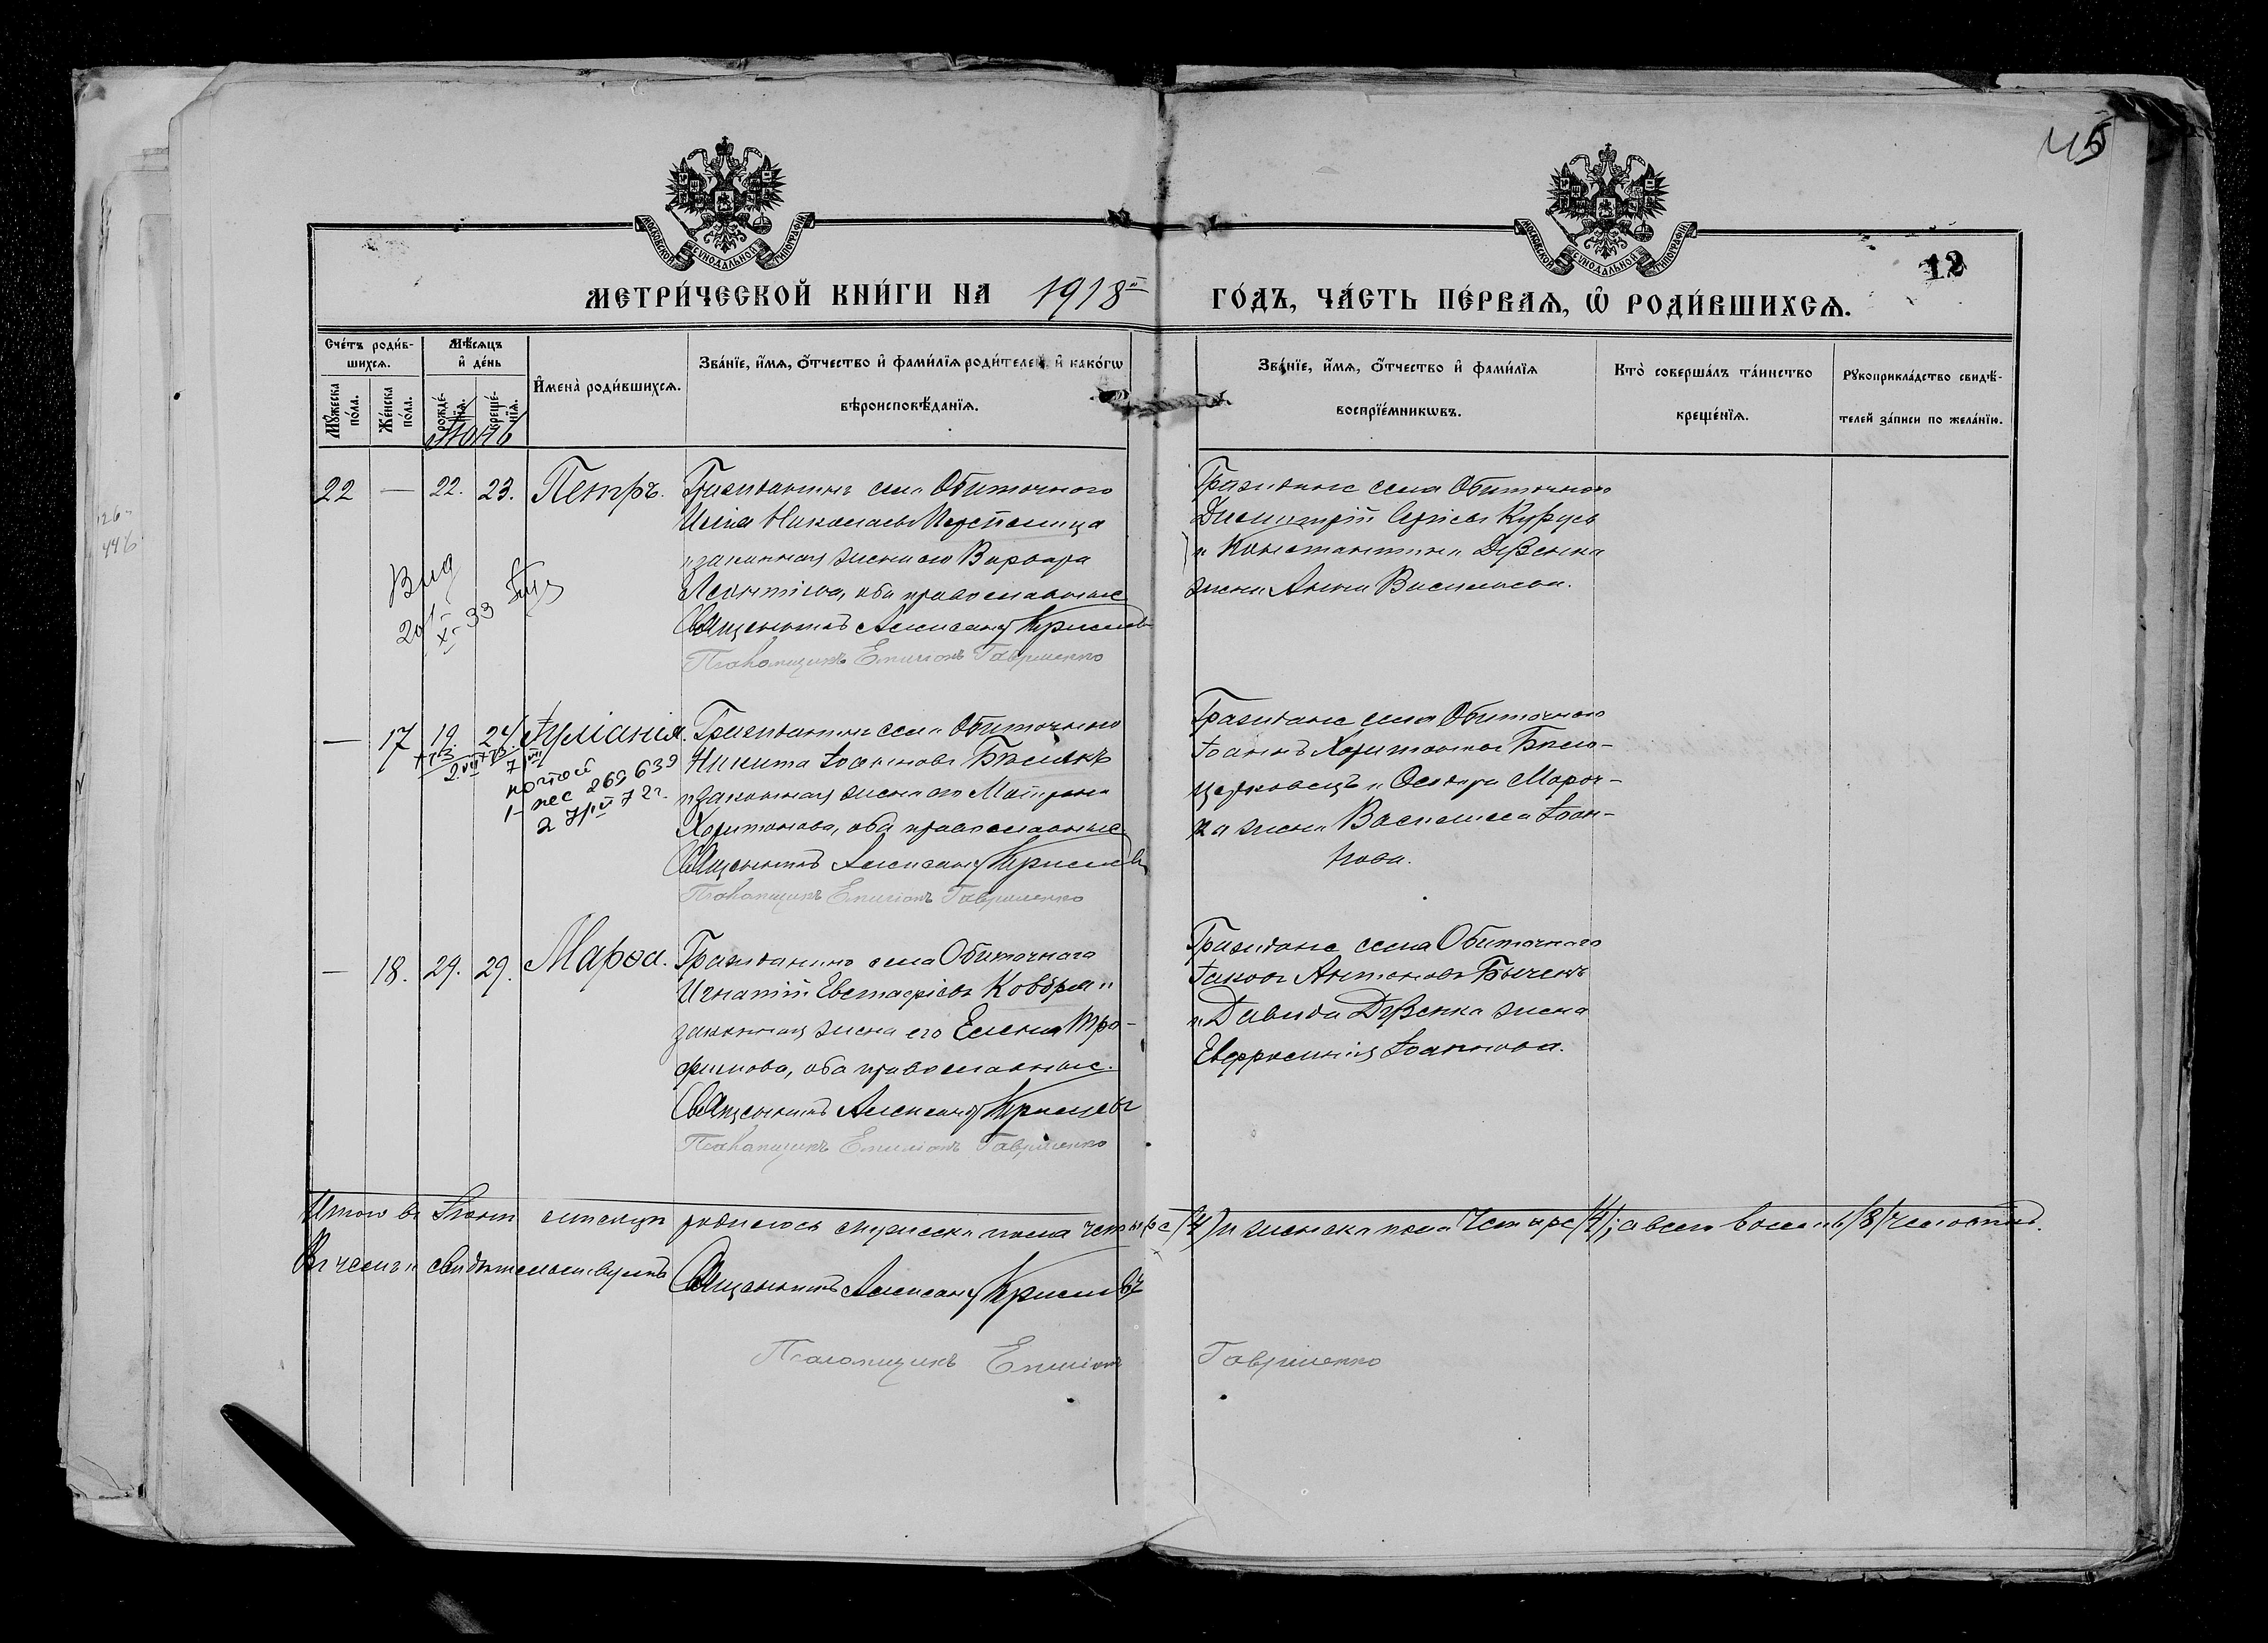 45
12
МОСКОВСКОЙ СѴНОДАЛЬНОЙ ТИПОГРАФІИ
МОСКОВСКОЙ СѴНОДАЛЬНОЙ ТИПОГРАФІИ
МЕТРИ́ЧЕСКОЙ КНИ́ГИ НА 1918й ГО́ДЪ, ЧА́СТЬ ПЕ́РВАѦ, Ѡ РОДИ́ВШИХСѦ.
Сче́тъ роди́вшихсѧ.
Мꙋ́жеска по́ла.
Же́нска по́ла.
Мѣ́сѧцъ и҆ де́нь
рожде́нїѧ.
креще́нїѧ.
И҆мена̀ роди́вшихсѧ.
Зва́нїе, и҆́мѧ, ѻ҆́тчество и҆ фами́лїѧ роди́телей, и҆ како́гѡ
вѣроисповѣ́данїѧ.
Зва́нїе, и҆́мѧ, ѻ҆́тчество и҆ фами́лїѧ
воспрїе́мникѡвъ.
Кто̀ соверша́лъ та́инство
креще́нїѧ.
Рꙋкоприкла́дство свидѣ́-
телей за́писи по жела́нїю.
Іюнь
22 — 22. 23. Петръ.
Гражданинъ села Обиточного
Илія Николаевъ
и законная жена его Варвара
Леонтіева, оба православные
Священникъ Александръ
Псаломщикъ Емиліанъ Гавриленко
Граждане села Обиточного
Димитрій
и Константина Дзюбенка
жена Анна Васильева.
Вид
20 X-33
— 17 19 24 Іуліанія.
почтой
1- пес 269639
2 72г.
Гражданинъ села Обиточного
Никита Іоанновъ
и законная жена его Матрона
Харитонова, оба православные
Священникъ Александръ
Псаломщикъ Емиліанъ Гавриленко
Граждане села Обиточного
Іоаннъ Харитоновъ Бѣло-
церковецъ и Исидора Мороч-
ка жена Василисса Іоан-
нова.
— 18. 24. 29. Марѳа.
Гражданинъ села Обиточного
Игнатій Евстафіевъ Ковбря и
законная жена его Елена Тро-
фимова, оба православные.
Священникъ Александръ
Псаломщикъ Емиліанъ Гавриленко
Граждане села Обиточного
Іаковъ Антоновъ Бычекъ
и Давида Дзюбенка жена
Евфросинія Іоаннова.
Итого въ Іюнѣ мѣсяцѣ родилось мужеска пола четыре /4/ и женска пола четыре /4/; а всего восемь /8/ человѣкъ.
Въ чемъ и свидѣтельствуемъ Священникъ Александръ
Псаломщикъ Емиліанъ Гавриленко